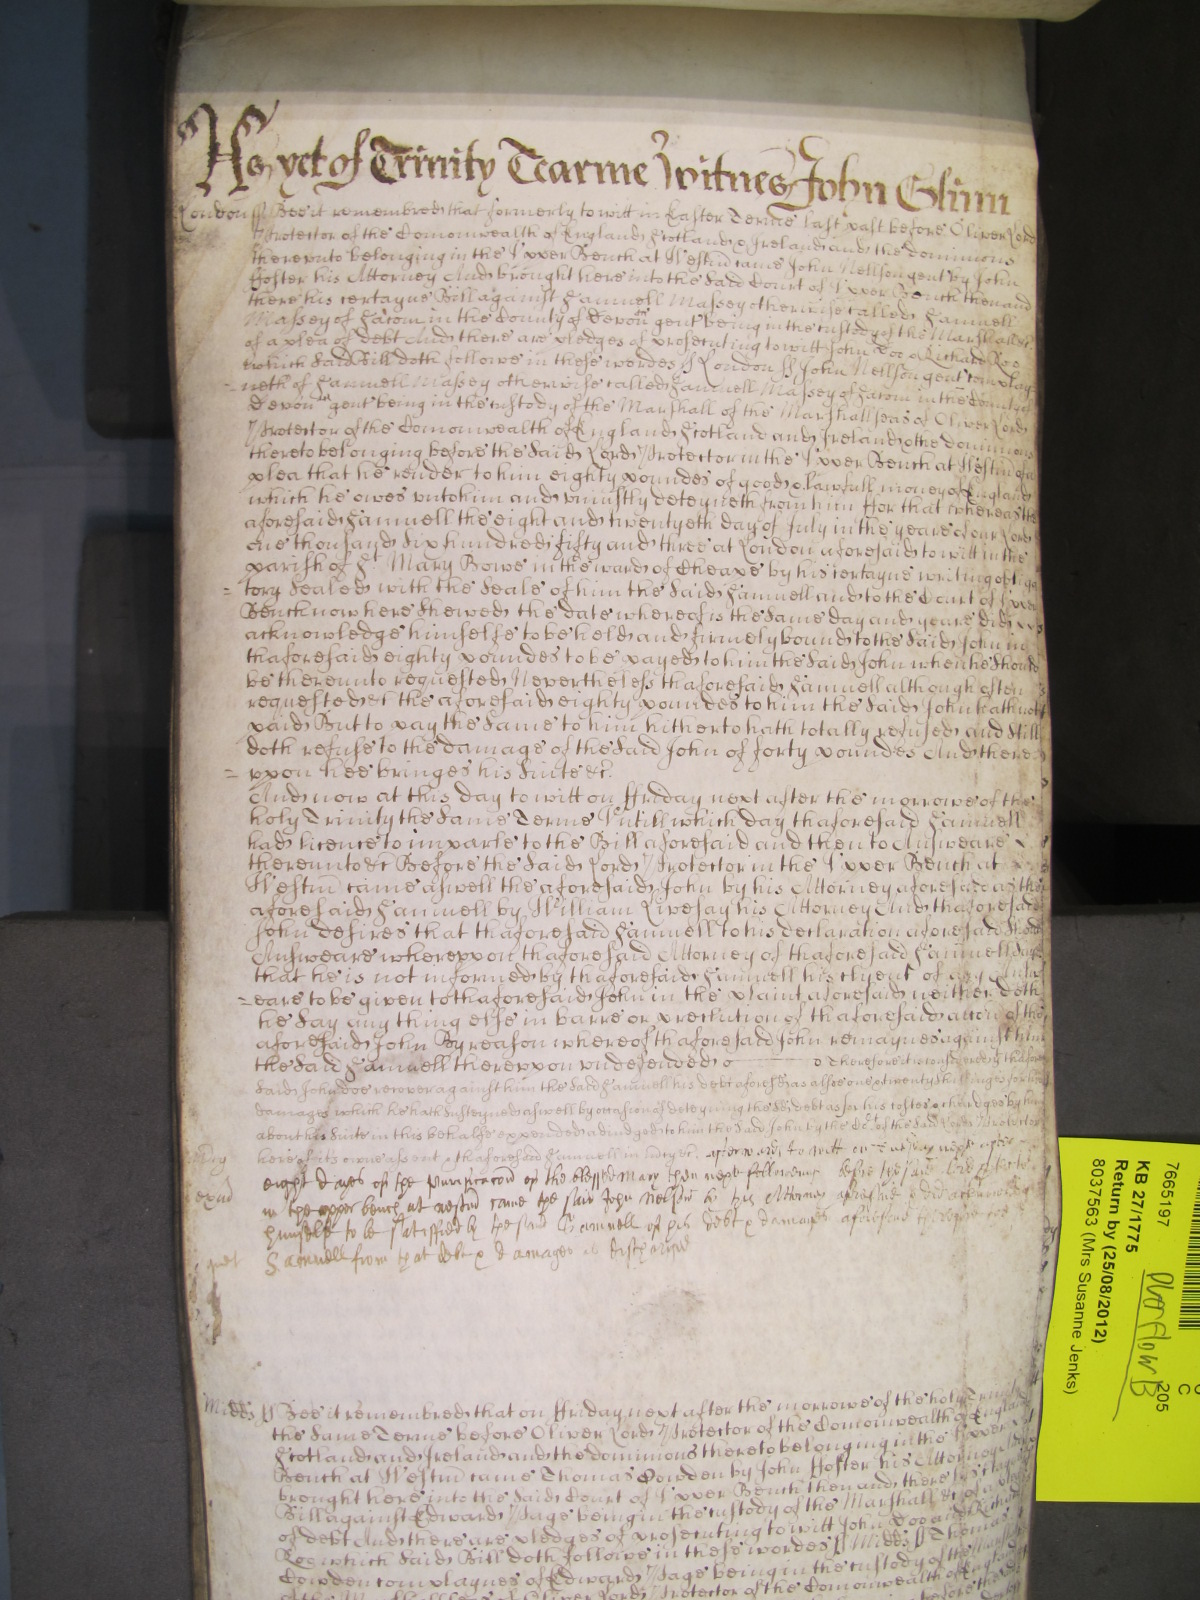 As yet of Trinity Tearme Witnes John Glinn
London ss Bee it remembred that formerly to witt in Easter Terme last past before Oliver Lord
Protector of the Comonwealth of England Scotland & Ireland and the dominions
thereunto belonging in the Upper Bench at Westm came John Nellson gent by John
Foster his Attorney And brought here into the said Court of Upper Bench then and
there his certayne Bill against Samuell Massey otherwise called Samuell
Massey of in the County of Devon gent being in the custody of the Marshall &c
of a plea of debt And there are pledges of prosecuting to witt John Doo & Richard Roo
which said Bill doth followe in these wordes ss London ss John Nellson gent complay
= neth of Samuell Massey otherwise called Samuell Massey of in the County of
Devon gent being in the custody of the Marshall of the Marshallseas of Oliver Lord
Protector of the Comonwealth of England Scotland and Ireland & the dominions
thereto belonging before the said Lord Protector in the Upper Bench at Westm of a
plea that he render to him eighty poundes of good & lawfull money of England
which he owes unto him and uniustly deteyneth from him ffor that whereas the
aforesaid Samuell the eight and twentyeth day of July in the yeare of our Lord
one thousand six hundred fifty and three at London aforesaid to witt in the
parish of St Mary Bowe in the ward of Cheape by his certayne writing obliga
= tory sealed with the seale of him the said Samuell and to the Court of Upper
Bench now here shewed the date whereof is the same day and yeare did
acknowledge himselfe to be held and firmely bound to the said John in
thaforesaid eighty poundes to be payed to him the said John when he should
be thereunto requested Neverthelesse thaforesaid Samuell although often
requested &c the aforesaid eighty poundes to him the said John hath not
paid But to pay the same to him hitherto hath totally refused and still
doth refuse to the damage of the said John of forty poundes And there
= uppon hee bringes his suite &c.
And now at this day to witt on ffriday next after the morrowe of the
holy Trinity the same Terme Untill which day thaforesaid Samuell
had licence to imparle to the Bill aforesaid and then to Answeare
thereunto &c Before the said Lord Protector in the Upper Bench at
Westm came aswell the aforesaid John by his Attorney aforesaid as the
aforesaid Samuell by William Livesay his Attorney And thaforesaid
John desires that thaforesaid Samuell to his declaration aforesaid should
Answeare whereuppon thaforesaid Attorney of thaforesaid Samuell says
that he is not informed by thaforesaid Samuell his clyent of any Answ
= eare to be given to thaforesaid John in the plaint aforesaid neither doth
he say any thing else in barre or preclution of thaforesaid accon of the
aforesaid John By reason whereof thaforesaid John remaynes against him
the said Samuell thereupon undefended Therefore it is considered that the
said John doe recover against him the said Samuell his debt aforesaid as alsoe one & twenty shillinges for his
damages which he hath susteyned aswell by occasion of deteyning the sd debt as for his costes & chardges by him
about his suite in this behalfe expended adiudged to him the said John by the Court of the said Lord Protector
here of his owne assent & thaforesaid Samuell in mercy &c afterwards to witt on next after
eight dayes of the purificacon of the blessed Mary then next following before the said lord protector
in the upper bench at westm came the said John Nelson by his Attorney aforesaid & did acknowledge
himselfe to be satisfied by the said Samuell of his debt & damages aforesaid therefore the
Samuell from that debt & damages is discharged
Midds ss Bee it remembred that on ffriday next after the morrowe of the holy Trinity
the same Terme before Oliver Lord Protector of the Comonwealth of England
Scotland and Ireland and the dominions thereto belonging in the Upper
Bench at Westm came Thomas Cowden by John Foster his Attorney And
brought here into the said Court of Upper Bench then and there his certayne
Bill against Edward Page being in the custody of the Marshall &c of a plea
of debt And there are pledges of prosecuting to witt John Doo and Richard
Roo which said Bill doth followe in these wordes ss Midds ss Thomas
Cowden complaynes of Edward Page being in the custody of the Marshall
of the Marshallseas of Oliver Lord Protector of the Comonwealth of England
7665197
KB 27/1775
Return by (25/08/2012)
8037563 (Mrs Susanne Jenks)
Overflow B
C
205